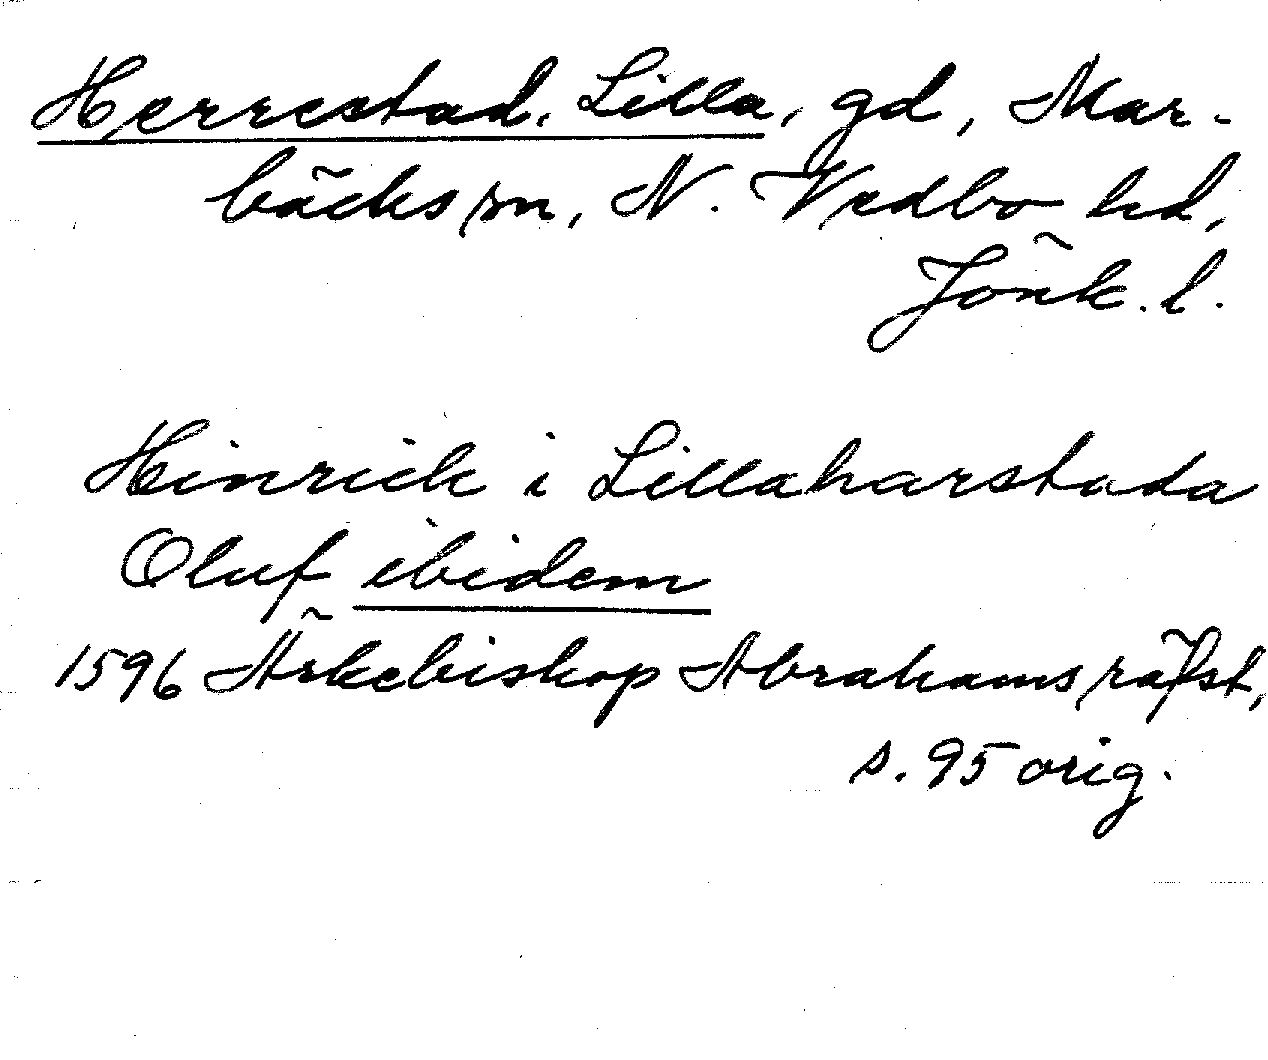 Herrestad, Lilla, gd, Mar-
bäcks sn, N. Vedbo hd,
Jönk. l.
Hinrick i Lillaharstada
Oluf ibidem
1596 Ärkebiskop Abrahams räfst,
s. 95 orig.